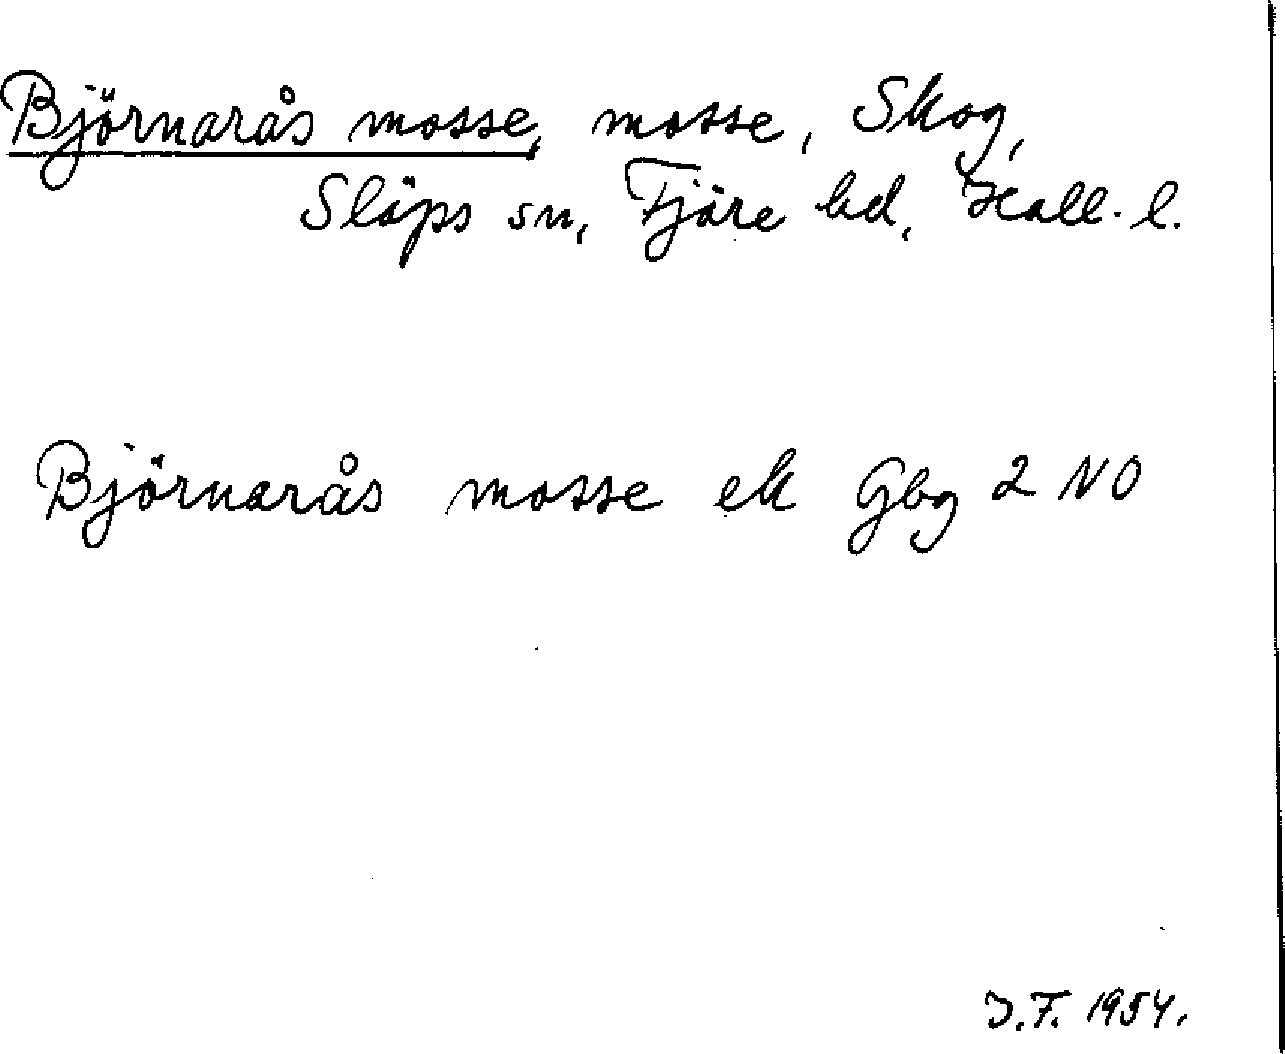 Björnarås mosse, mosse, Skog,
Släps sn, Fjäre hd, Hall. l.
Björnarås mosse ek Gbg 2 NO
J.F. 1954.